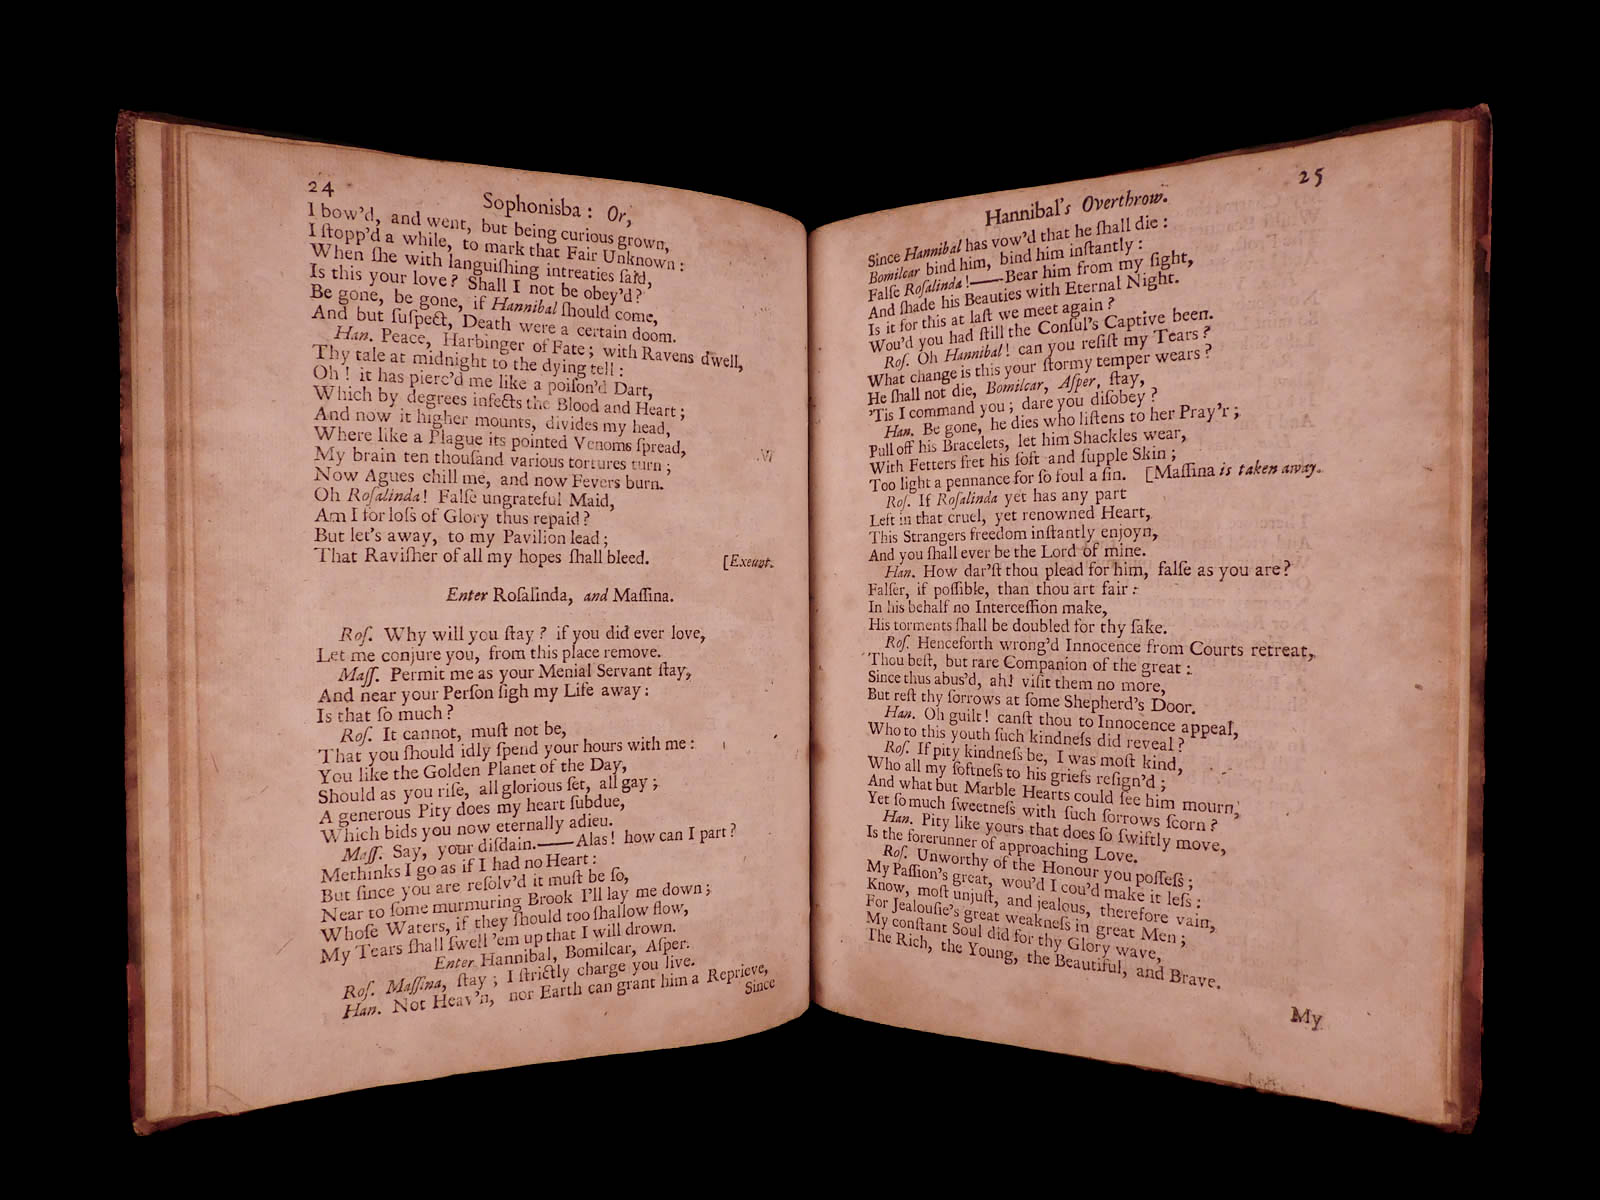 24
Sophonisba: Or,
I bow'd, and went, but being curious grown,
I ſtopp'd a while, to mark that Fair Unknown:
When ſhe with languiſhing intreaties ſaid,
Is this your love? Shall I not be obey'd?
Be gone, be gone, if Hannibal ſhould come,
And but ſuſpect, Death were a certain doom.
Han. Peace, Harbinger of Fate; with Ravens dwell,
Thy tale at midnight to the dying tell:
Oh! it has pierc'd me like a poiſon'd Dart,
Which by degrees infects the Blood and Heart;
And now it higher mounts, divides my head,
Where like a Plague its pointed Venoms ſpread,
My brain ten thouſand various tortures turn;
Now Agues chill me, and now Fevers burn.
Oh Roſalinda! Falſe ungrateful Maid,
Am I for loſs of Glory thus repaid?
But let's away, to my Pavilion lead;
That Raviſher of all my hopes ſhall bleed. [Exeunt.
Enter Roſalinda, and Maſſina.
Roſ. Why will you ſtay? if you did ever love,
Let me conjure you, from this place remove.
Maſſ. Permit me as your Menial Servant ſtay,
And near your Perſon ſigh my Life away:
Is that ſo much?
Roſ. It cannot, muſt not be,
That you ſhould idly ſpend your hours with me:
You like the Golden Planet of the Day,
Should as you riſe, all glorious ſet, all gay;
A generous Pity does my heart ſubdue,
Which bids you now eternally adieu.
Maſſ. Say, your diſdain.——Alas! how can I part?
Methinks I go as if I had no Heart:
But ſince you are reſolv'd it muſt be ſo,
Near to ſome murmuring Brook I'll lay me down;
Whoſe Waters, if they ſhould too ſhallow flow,
My Tears ſhall ſwell 'em up that I will drown.
Enter Hannibal, Bomilcar, Aſper.
Roſ. Maſſina, ſtay; I ſtrictly charge you live.
Han. Not Heav'n, nor Earth can grant him a Reprieve,
Since
25
Hannibal's Overthrow.
Since Hannibal has vow'd that he ſhall die:
Bomilcar bind him, bind him inſtantly:
Falſe Roſalinda!——Bear him from my ſight,
And ſhade his Beauties with Eternal Night.
Is it for this at laſt we meet again?
Wou'd you had ſtill the Conſul's Captive been.
Roſ. Oh Hannibal! can you reſiſt my Tears?
What change is this your ſtormy temper wears?
He ſhall not die, Bomilcar, Aſper, ſtay,
'Tis I command you; dare you diſobey?
Han. Be gone, he dies who liſtens to her Pray'r;
Pull off his Bracelets, let him Shackles wear,
With Fetters fret his ſoft and ſupple Skin;
Too light a pennance for ſo foul a ſin. [Maſſina is taken away.
Roſ. If Roſalinda yet has any part
Left in that cruel, yet renowned Heart,
This Strangers freedom inſtantly enjoyn,
And you ſhall ever be the Lord of mine.
Han. How dar'ſt thou plead for him, falſe as you are?
Falſer, if poſſible, than thou art fair:
In his behalf no Interceſſion make,
His torments ſhall be doubled for thy ſake.
Roſ. Henceforth wrong'd Innocence from Courts retreat,
Thou beſt, but rare Companion of the great:
Since thus abus'd, ah! viſit them no more,
But reſt thy ſorrows at ſome Shepherd's Door.
Han. Oh guilt! canſt thou to Innocence appeal,
Who to this youth ſuch kindneſs did reveal?
Roſ. If pity kindneſs be, I was moſt kind,
Who all my ſoftneſs to his griefs reſign'd;
And what but Marble Hearts could ſee him mourn,
Yet ſo much ſweetneſs with ſuch ſorrows ſcorn?
Han. Pity like yours that does ſo ſwiftly move,
Is the forerunner of approaching Love.
Roſ. Unworthy of the Honour you poſſeſs;
My Paſſion's great, wou'd I cou'd make it leſs:
Know, moſt unjuſt, and jealous, therefore vain,
For Jealouſie's great weakneſs in great Men;
My conſtant Soul did for thy Glory wave,
The Rich, the Young, the Beautiful, and Brave.
My